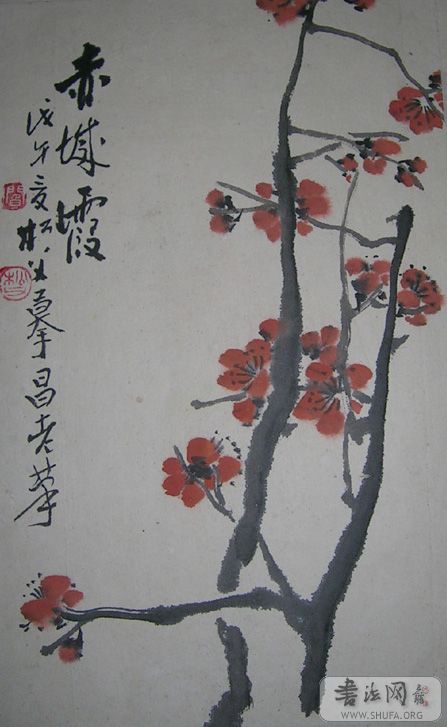 赤城霞
戊午夏松摹昌老
書法网
WWW.SHUFA.ORG